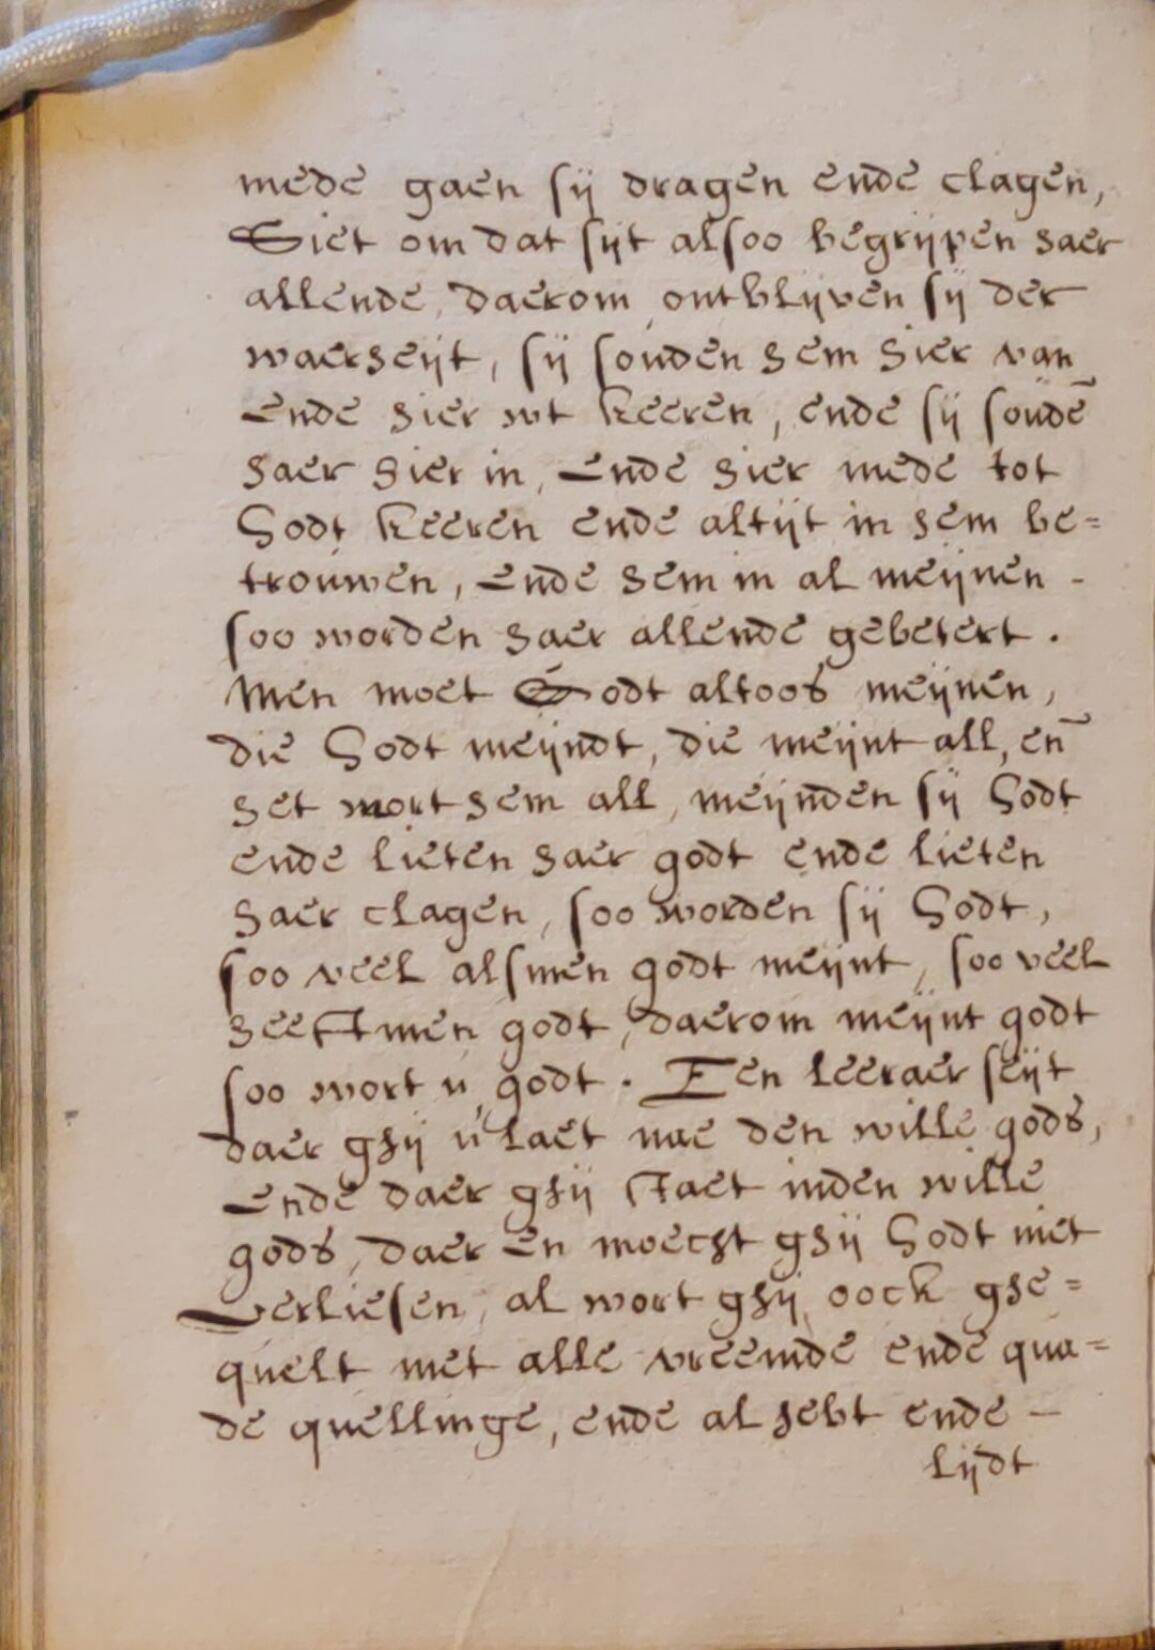 mede gaen sij dragen ende clagen,
Siet om dat sijt alsoo begrijpen haer
allende, daerom ontblijven sij der
waerheijt, sij souden hem hier van
ende hier wt keeren, ende sij soudē
haer hier in, ende hier mede tot
Godt keeren ende altijt in hem be=
trouwen, ende hem in al meijnen -
soo worden haer allende gebetert.
Men moet Godt altoos meijnen,
die Godt meijndt, die meijnt all, en̄
het wort hem all, meijnden sij Godt
ende lieten haer godt ende lieten
haer clagen, soo worden sij Godt,
soo veel alsmen godt meijnt, soo veel
heeftmen godt, daerom meijnt godt
soo wort u godt. Een leeraer seijt
daer ghij u laet nae den wille gods,
ende daer ghij staet inden wille
gods, daer en moecht ghij Godt niet
verliesen, al wort ghij oock ghe=
quelt met alle vreemde ende qua=
de quellinge, ende al hebt ende -
lijdt